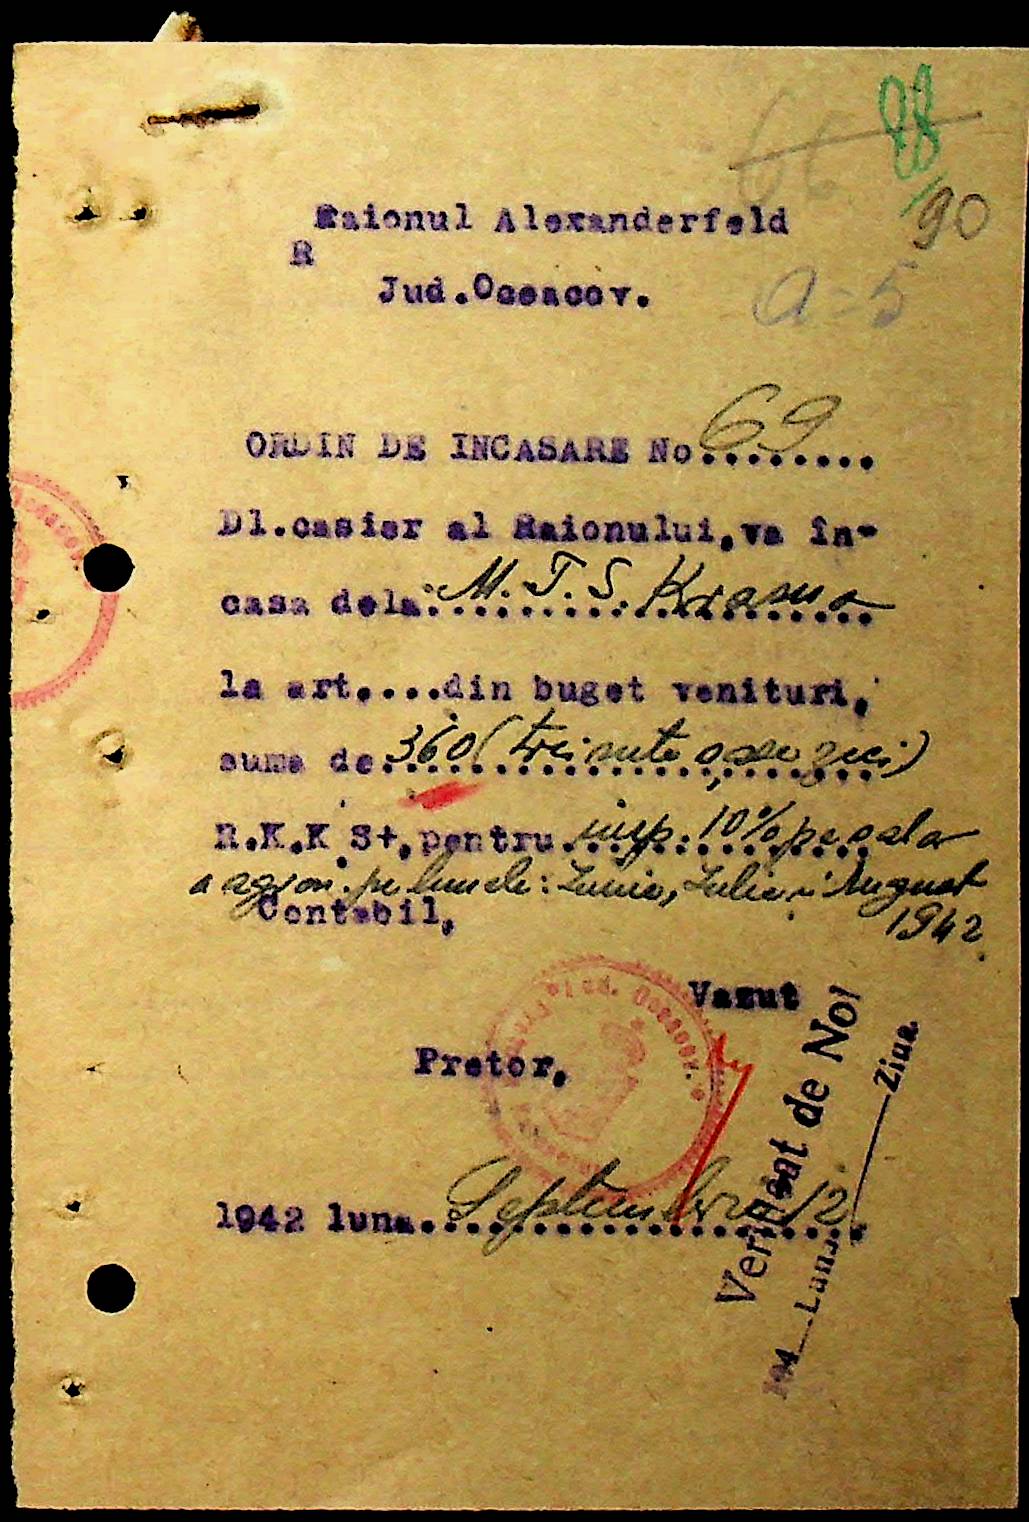 66
88
90
a=5
Raionul Alexanderfeld
R
Jud.Oceacov.
ORDIN DE INCASARE No 69........
Dl.casier al Raionului,va în-
casa dela: M. T. S. Krasna
la art....din buget venituri,
suma de 360 (trei sute șase zeci)
R.K.K S+,pentru imp. 10% pe sala
a agron. pe lunele: Iunie, Iulie i August
1942
Contabil,
Vazut
Pretor,
1942 luna Septembrie 12
Verificat de Noi
194__Luna__Ziua